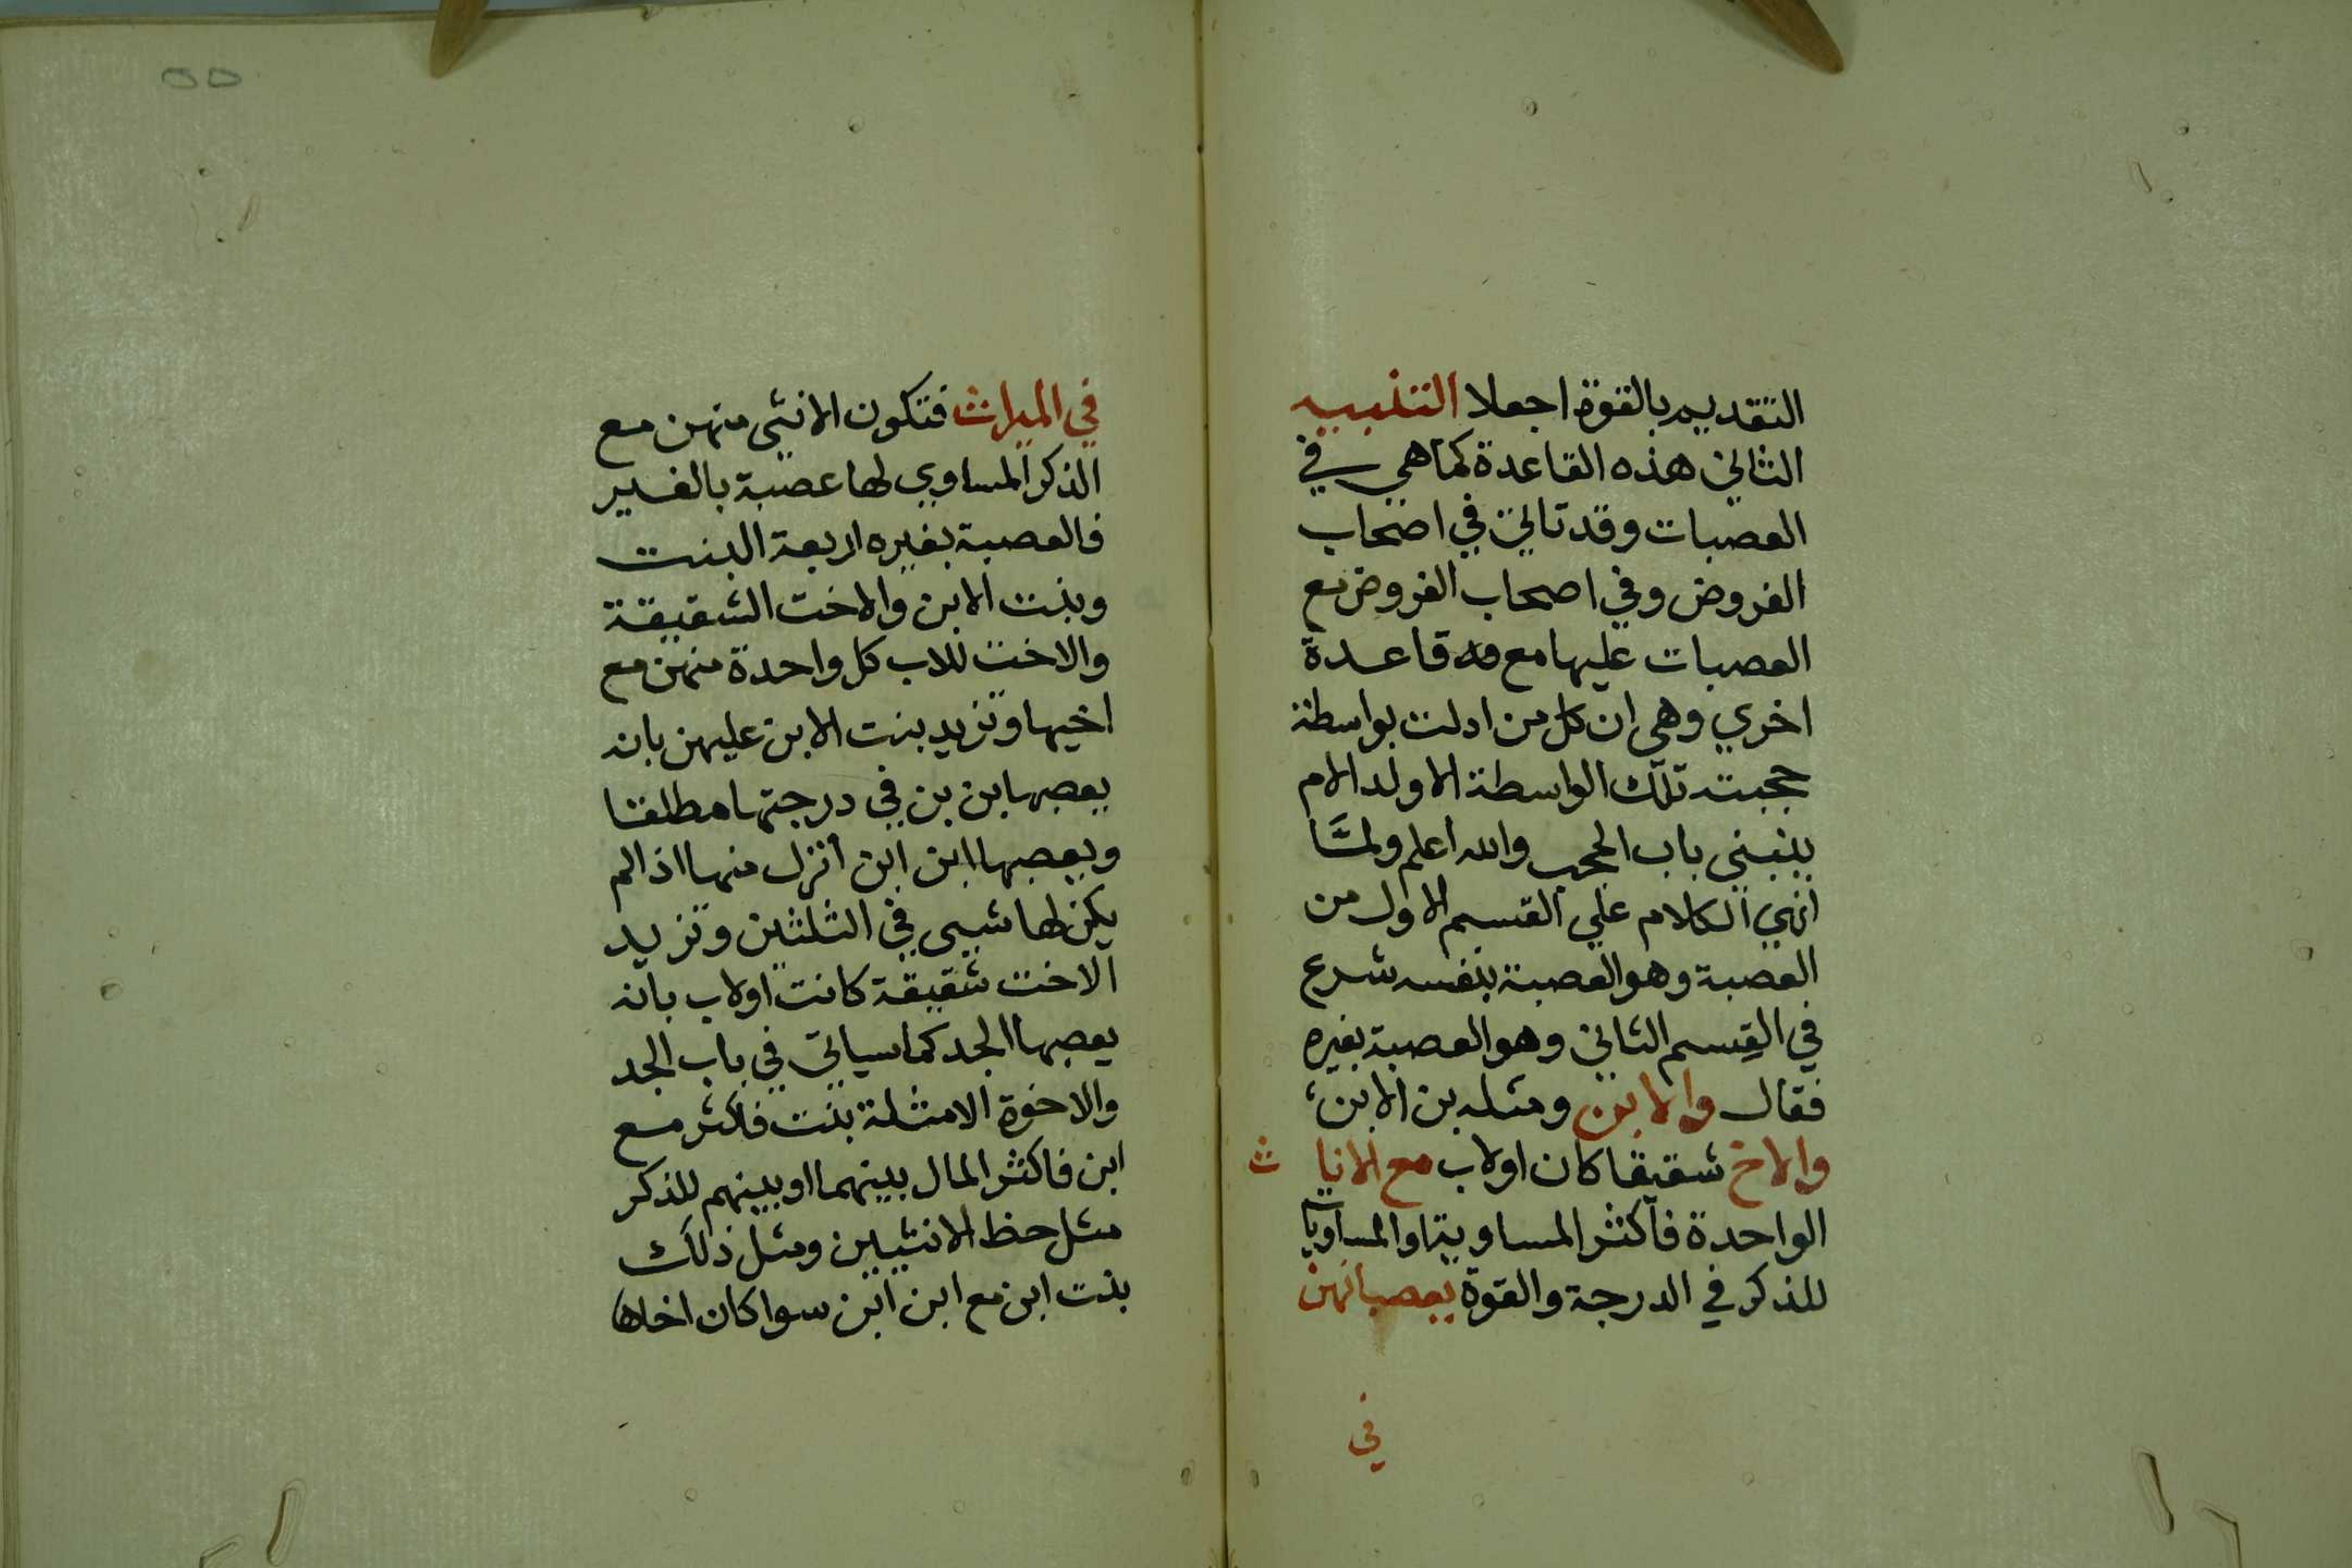 التقديم بالقوة اجعلا التنبيه
الثاني هذه القاعدة كما هي في
العصبات وقد تاتي في اصحاب
الفروض وفي اصحاب الفروض مع
العصبات عليها مع قاعدة
اخري وهي ان كل من ادلت بواسطة
حجبته تلك الواسطة الا ولد الام
ينبني باب الحجب والله اعلم ولمّا
انهي الكلام علي القسم الاول من
العصبة وهو العصبة بنفسه شرع
في القِسم الثاني وهو العصبة بغيره
فقال والابن ومثله بن الابن
والاخ شقيقا كان اولاب مع الاناث
الواحدة فاكثر المساوية او المساويات
للذكر في الدرجة والقوة يعصبانهن
في
٥٥
في الميراث فتكون الانثي منهن مع
الذكر المساوي لها عصبة بالغير
فالعصبة بغيره اربعة البنت
وبنت الابن والاخت الشقيقة
والاخت للاب كل واحدة منهن مع
اخيها وتزيد بنت الابن عليهن بانه
يعصبها بن بن في درجتها مطلقا
ويعصبها ابن ابن انزل منها اذا لم
يكن لها شيي في الثلثين وتزيد
الاخت شقيقة كانت اولاب بانه
يعصبها الجد كما سياتي في باب الجد
والاخوة الامثلة بنت فاكثر مع
ابن فاكثر المال بينهما او بينهم للذكر
مثل حظ الانثيين ومثل ذلك
بنت ابن مع ابن ابن سوا كان اخاها